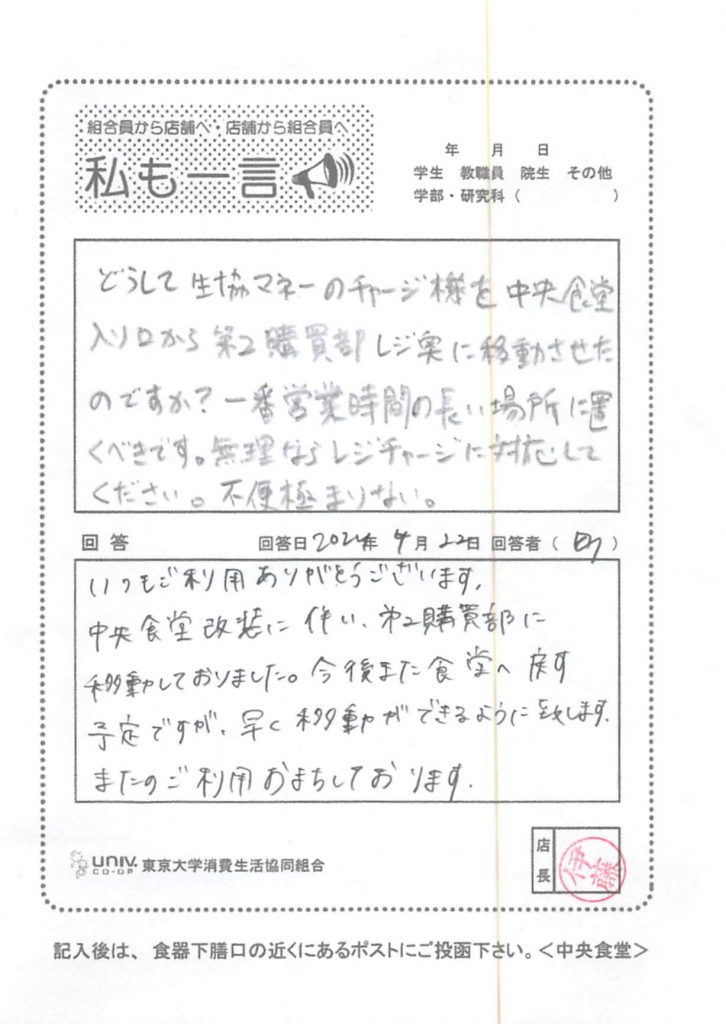 組合員から店舗へ・店舗から組合員へ
私も一言
年 月 日
学生 教職員 院生 その他
学部・研究科( )
どうして生協マネーのチャージ機を中央食堂
入り口から第2購買部レジ奥に移動させた
のですか?一番営業時間の長い場所に置
くべきです。無理ならレジチャージに対応して
ください。不便極まりない。
回答 回答日2024年 4月 22日 回答者( )
いつもご利用ありがとうございます。
中央食堂改装に伴い、第2購買部に
移動しておりました。今後また食堂へ戻す
予定ですが、早く移動ができるように致します。
またのご利用おまちしております。
UNIV. CO-OP 東京大学消費生活協同組合
店長 伊藤
記入後は、食器下膳口の近くにあるポストにご投函下さい。<中央食堂>